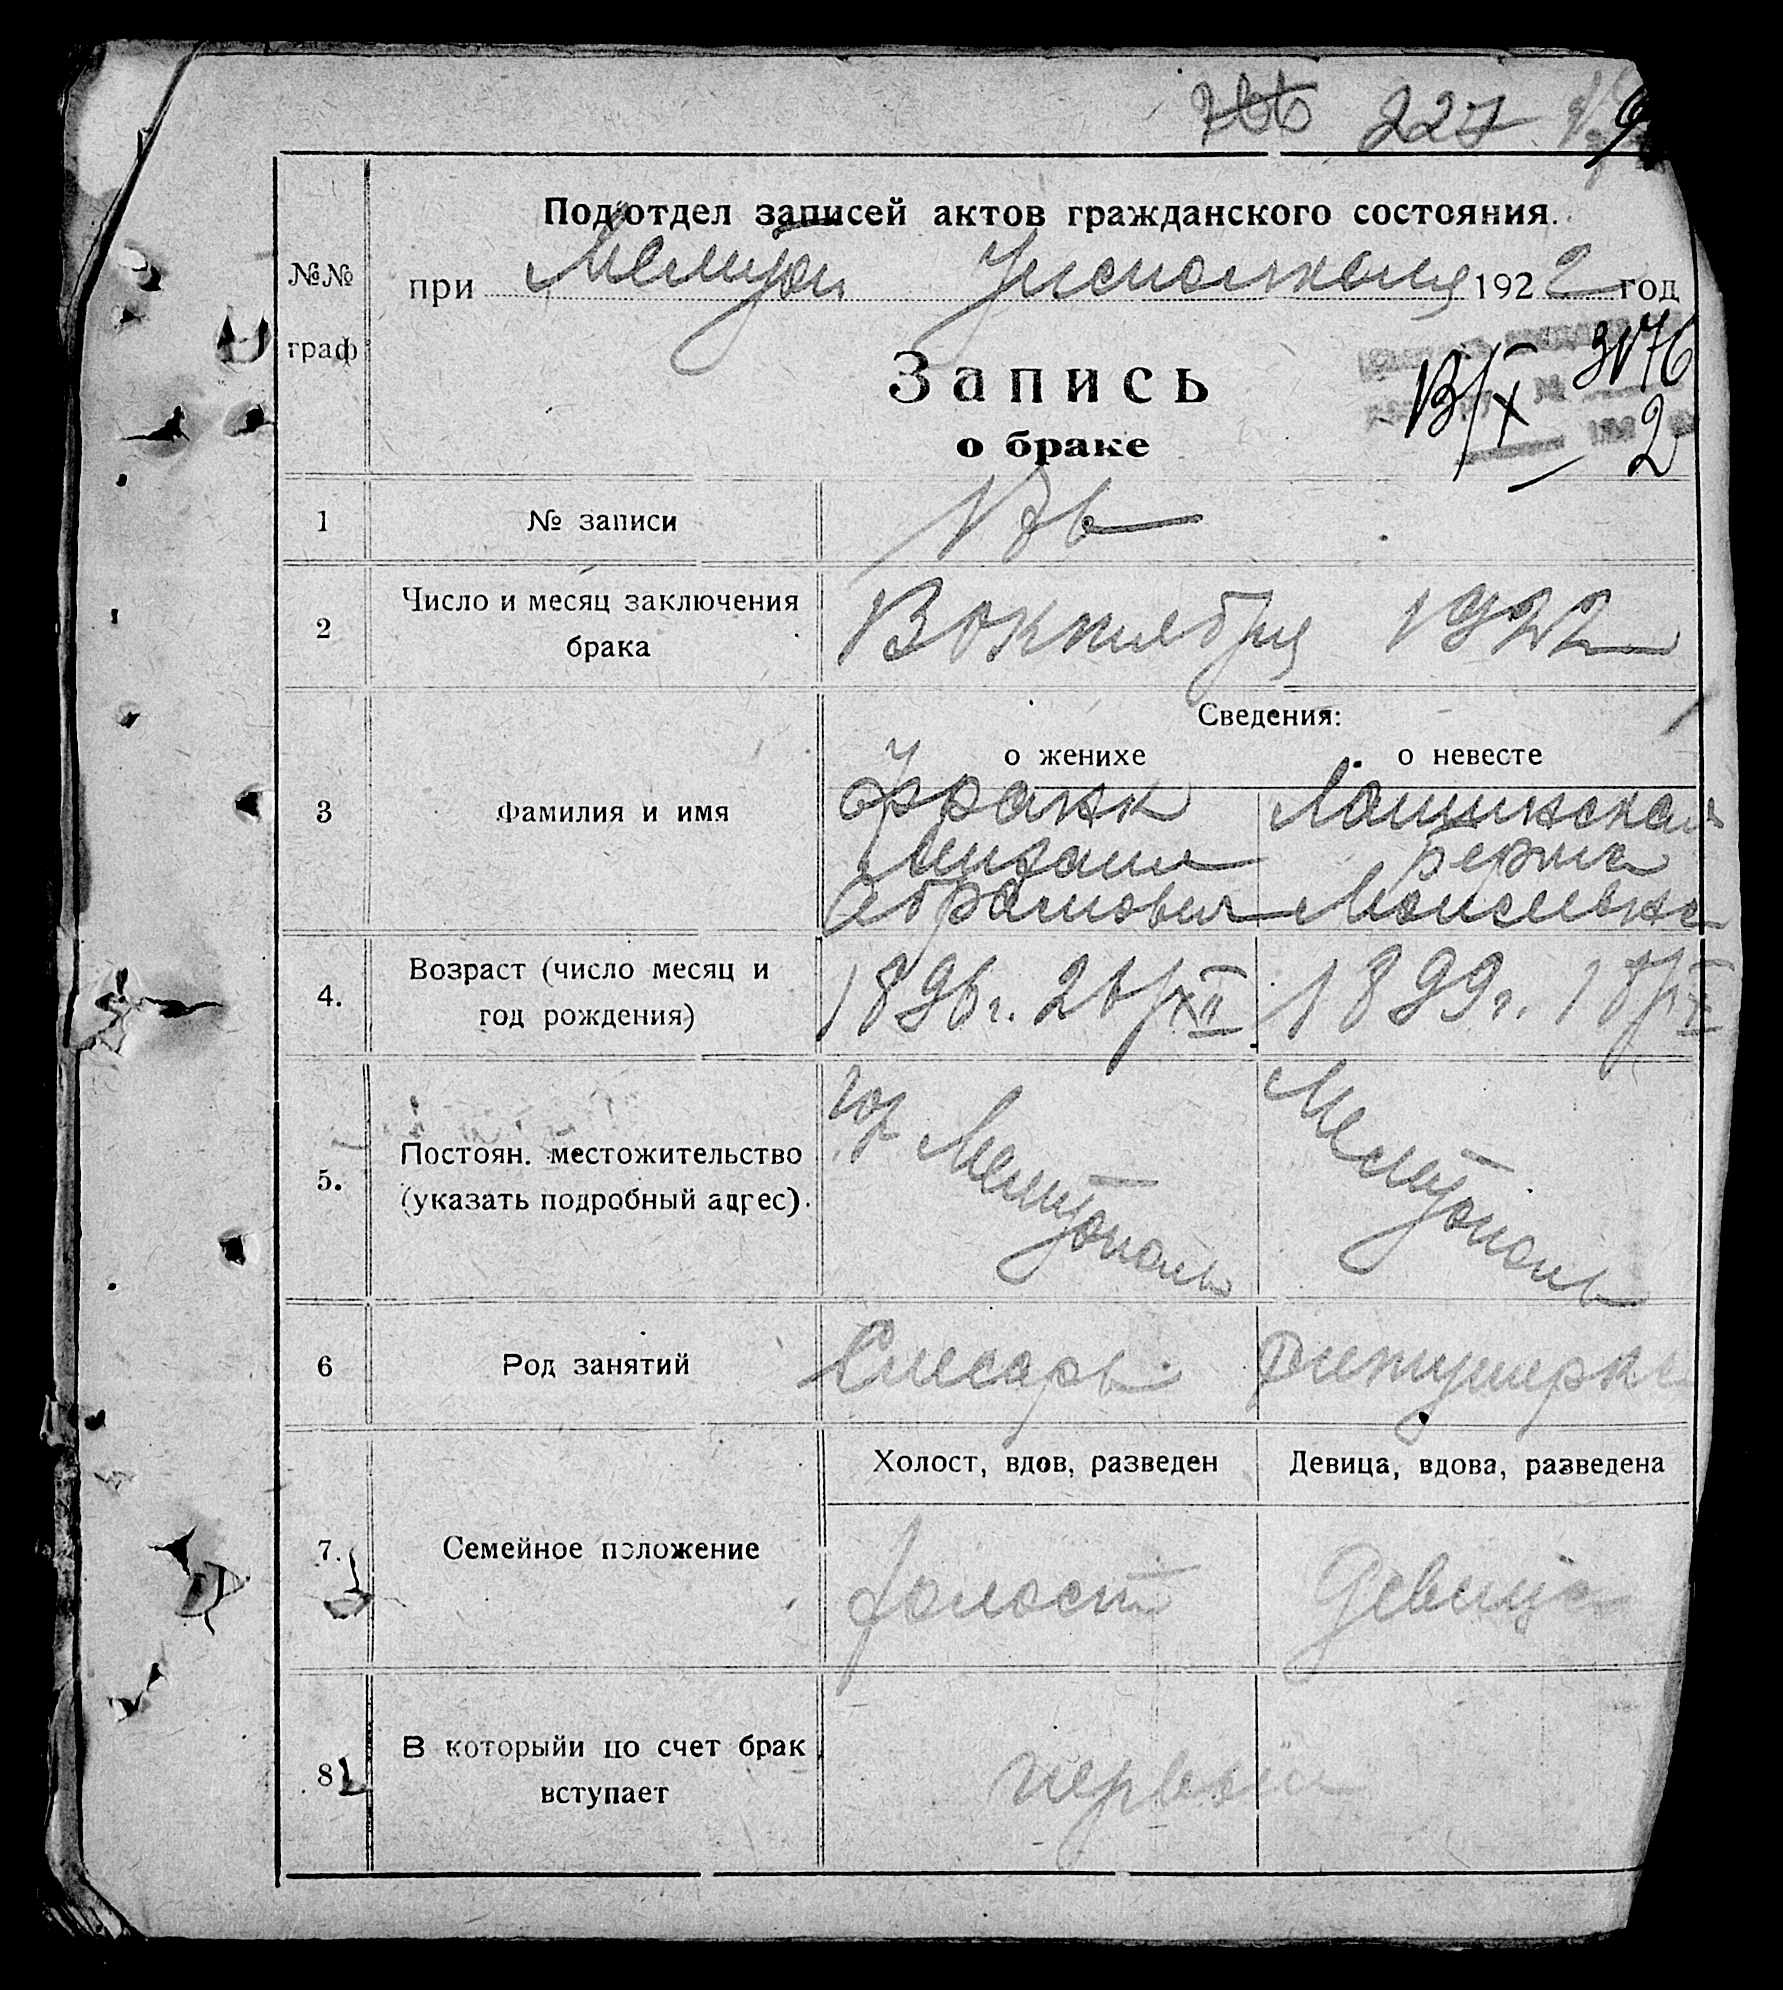 227
Подотдел записей актов гражданского состояния.
при Мелитоп Уисполкома 1922 год
№№
граф
Запись
о браке
13/X 3176
2
1 № записи 176
2 Число и месяц заключения
брака
13 октября 1922
Сведения:
о женихе о невесте
3 Фамилия и имя
Франк Лашинская
Михаил Берта
Абрамович Моисеевна
4. Возраст (число месяц и
год рождения)
1896 г. 26/XII 1899 г.
5. Постоян. местожительство
(указать подробный адрес).
гор Мелитополь Мелитополь
6 Род занятий Слесарь Ретушерка
Холост, вдов, разведен Девица, вдова, разведена
7. Семейное положение
холост Девица
8 В которыйи по счет брак
вступает
первый